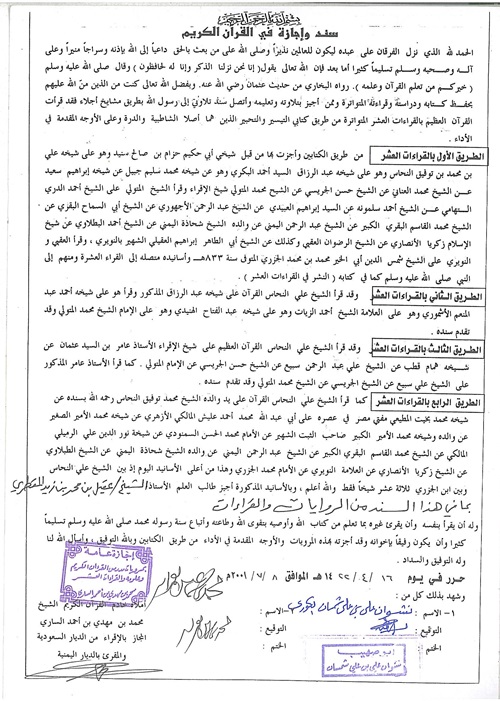 بسم الله الرحمن الرحيم
سند وإجازة في القرآن الكريم
الحمد لله الذي نزل الفرقان على عبده ليكون للعالمين نذيراً وصلى الله على من بعث بالحق داعياً إلى الله بإذنه وسراجاً منيراً وعلى
آله وصحبه وسلم تسليماً كثيرا أما بعد فإن الله تعالى يقول (إنا نحن نزلنا الذكر وإنا له لحافظون) وقال صلى الله عليه وسلم
(خيركم من تعلم القرآن وعلمه). رواه البخاري من حديث عثمان رضي الله عنه. وبفضل الله تعالى كنت من الذين منّ الله عليهم
بحفظ كتابه ودراسة وقراءته المتواترة وممن أجيز بتلاوته وتعليمه وأتصل سند تلاوتي إلى رسول الله بطريق مشايخ أجلاء فقد قرأت
القرآن العظيم بالقراءات العشر المتواترة من طريق كتابي التيسير والتحبير الذين هما أصلا الشاطبية والدرة وعلى الأوجه المقدمة في
الأداء.
الطريق الأول بالقراءات العشر من طريق الكتابين وأجزت بها من قبل شيخي أبي حكيم حزام بن صالح سنيد وهو على شيخه علي
بن محمد بن توفيق النحاس وهو على شيخه عبد الرزاق السيد أحمد البكري وهو عن شيخه محمد سليم جبيل عن شيخه إبراهيم سعيد
عن الشيخ محمد العناني عن الشيخ حسن الجريسي عن الشيخ محمد المتولي شيخ الإقراء وقرأ الشيخ المتولي على الشيخ أحمد الدري
التهامي عن الشيخ أحمد سلمونه عن السيد إبراهيم العبيدي عن الشيخ عبد الرحمن الأجهوري عن الشيخ أبي السماح البقري عن
الشيخ محمد القاسم البقري الكبير عن الشيخ عبد الرحمن اليمني عن والده الشيخ شحاذة اليمني عن الشيخ أحمد الطبلاوي عن شيخ
الإسلام زكريا الأنصاري عن الشيخ الرضوان العقبي وكذلك عن الشيخ أبي الطاهر إبراهيم العقيلي الشهير بالنويري، وقرأ العقبي و
النويري على الشيخ شمس الدين أبي الخير محمد بن محمد الجزري المتوفى سنة ٨٣٣هـ وأسانيده متصله إلى القراء العشرة ومنهم إلى
النبي صلى الله عليه وسلم كما في كتابه (النشر في القراءات العشر).
الطريق الثاني بالقراءات العشر وقد قرأ الشيخ علي النحاس القرآن على شيخه عبد الرزاق المذكور وقرأ هو على شيخه أحمد عبد
المنعم الأشموري وهو على العلامة الشيخ أحمد الزيات وهو على شيخه عبد الفتاح الهنيدي وهو على الإمام الشيخ محمد المتولي وقد
تقدم سنده.
الطريق الثالث بالقراءات العشر وقد قرأ الشيخ علي النحاس القرآن العظيم على شيخ الإقراء الأستاذ عامر بن السيد عثمان عن
شيخه همام قطب عن الشيخ علي عبد الرحمن سبيع عن الشيخ حسن الجريسي عن الإمام المتولي. كما قرأ الأستاذ عامر المذكور
على الشيخ علي سبيع عن الشيخ الجريسي عن الشيخ محمد المتولي وقد تقدم سنده.
الطريق الرابع بالقراءات العشر كما قرأ الشيخ علي النحاس القرآن على يد والده الشيخ محمد توفيق النحاس رحمه الله بسنده عن
شيخه محمد بخيت المطيعي مفتي مصر في عصره على أبي عبد الله محمد أحمد عليش المالكي الأزهري عن شيخه محمد الأمير الصغير
عن والده وشيخه محمد الأمير الكبير صاحب الثبت الشهير عن الأمام محمد الحسن السمنودي عن شيخه نور الدين علي الرميلي
المالكي عن الشيخ محمد القاسم البقري الكبير عن الشيخ عبد الرحمن اليمني عن والده الشيخ شحاذة اليمني عن الشيخ الطبلاوي
عن الشيخ زكريا الأنصاري عن العلامة النويري عن الأمام محمد الجزري وهذا من أعلى الأسانيد اليوم إذ بين الشيخ علي النحاس
وبين ابن الجزري ثلاثة عشر شيخاً فقط والله أعلم، وبالأسانيد المذكورة أجيز طالب العلم الأستاذ/ الشيخ/ عقيل بن محمد بن زيد
بما في هذا السند من الروايات والقراءات
وله أن يقرأ بنفسه وأن يقرئ غيره بما تعلم من كتاب الله وأوصيه بتقوى الله وطاعته وأتباع سنة رسوله محمد صلى الله عليه وسلم تسليماً
كثيرا وأن يكون رفيقاً بإخوانه وقد أجزته بهذه المرويات والأوجه المقدمة في الأداء من طريق الكتابين وبالله التوفيق، وأسأل الله لنا
وله التوفيق والسداد.
حرر في يوم ١٦ / ٤ / ١٤٢٢ هـ الموافق ٨ / ٧ / ٢٠٠١م
وشهد بذلك كل من:
١- الاسم: نشوان علي بن علي شمسان
التوقيع:
الختم:
الاسم:
التوقيع:
الختم:
أبو صهيب
نشوان علي بن علي شمسان
إجازة عامة
أملاه خادم القرآن الكريم الشيخ
محمد بن مهدي بن أحمد الساري
المجاز بالإقراء من الديار السعودية
والمقرئ بالديار اليمنية